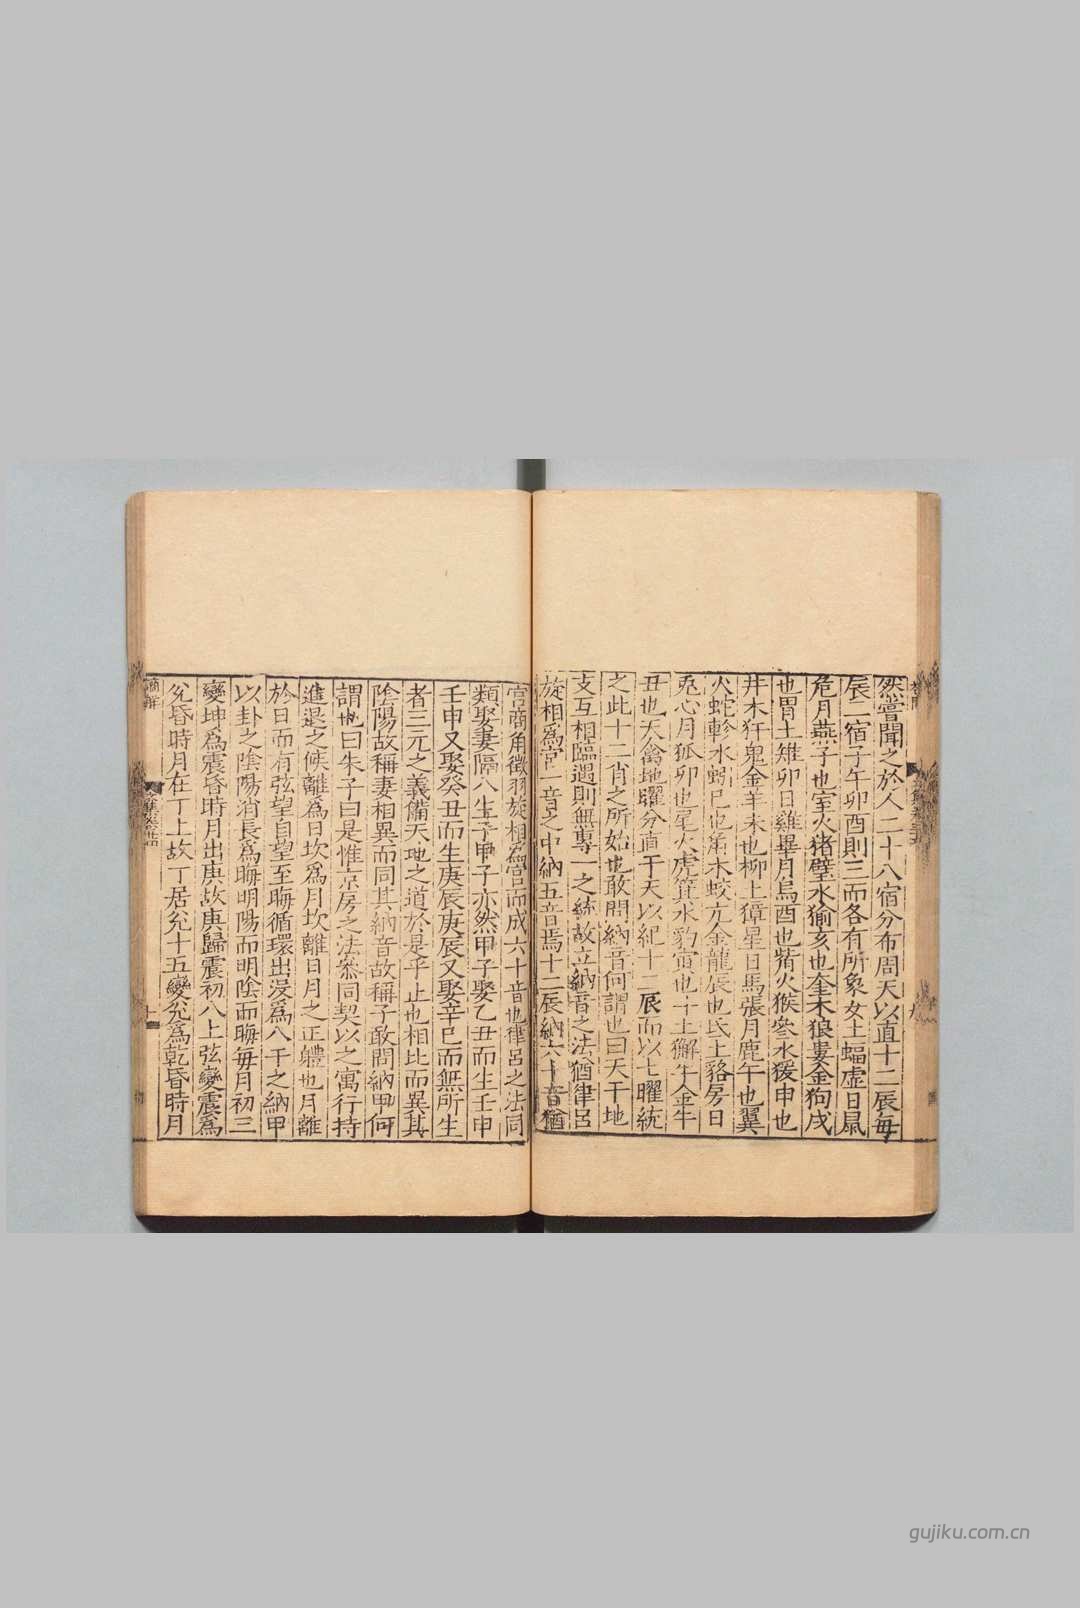 然嘗聞之於人二十八宿分布周天以直十二辰每
辰二宿子午卯酉則三而各有所象女土蝠虛日鼠
危月燕子也室火猪壁水㺄亥也奎木狼婁金狗戌
也胃土雉卯日雞畢月烏酉也觜火猴參水猨申也
井木犴鬼金羊未也柳土獐星日馬張月鹿午也翼
火蛇軫水蚓巳也角木蛟亢金龍辰也氐土貉房日
兎心月狐卯也尾火虎箕水豹寅也斗土獬牛金牛
丑也天禽地曜分直干天以紀十二辰而以七曜統
之此十二肖之所始也敢問納音何謂也曰天干地
支互相臨遇則無專一之統故立納音之法猶律呂
旋相爲宮一音之中納五音焉十二辰納六十音猶
宮商角徵羽旋相爲宮而成六十音也律呂之法同
類娶妻隔八生子甲子亦然甲子娶乙丑而生壬申
壬申又娶癸丑而生庚辰庚辰又娶辛巳而無所生
者三元之義備天地之道於是乎止也相比而異其
陰陽故稱妻相異而同其納音故稱子敢問納甲何
謂也曰朱子曰是惟京房之法叅同契以之寓行持
進退之候離爲日坎爲月坎離日月之正軆也月離
於日而有弦望自望至晦循環出沒爲八干之納甲
以卦之陰陽消長爲晦明陽而明陰而晦每月初三
變坤爲震昏時月出庚故庚歸震初八上弦變震爲
兊昏時月在丁上故丁居兊十五變兊爲乾昏時月
gujiku.com.cn